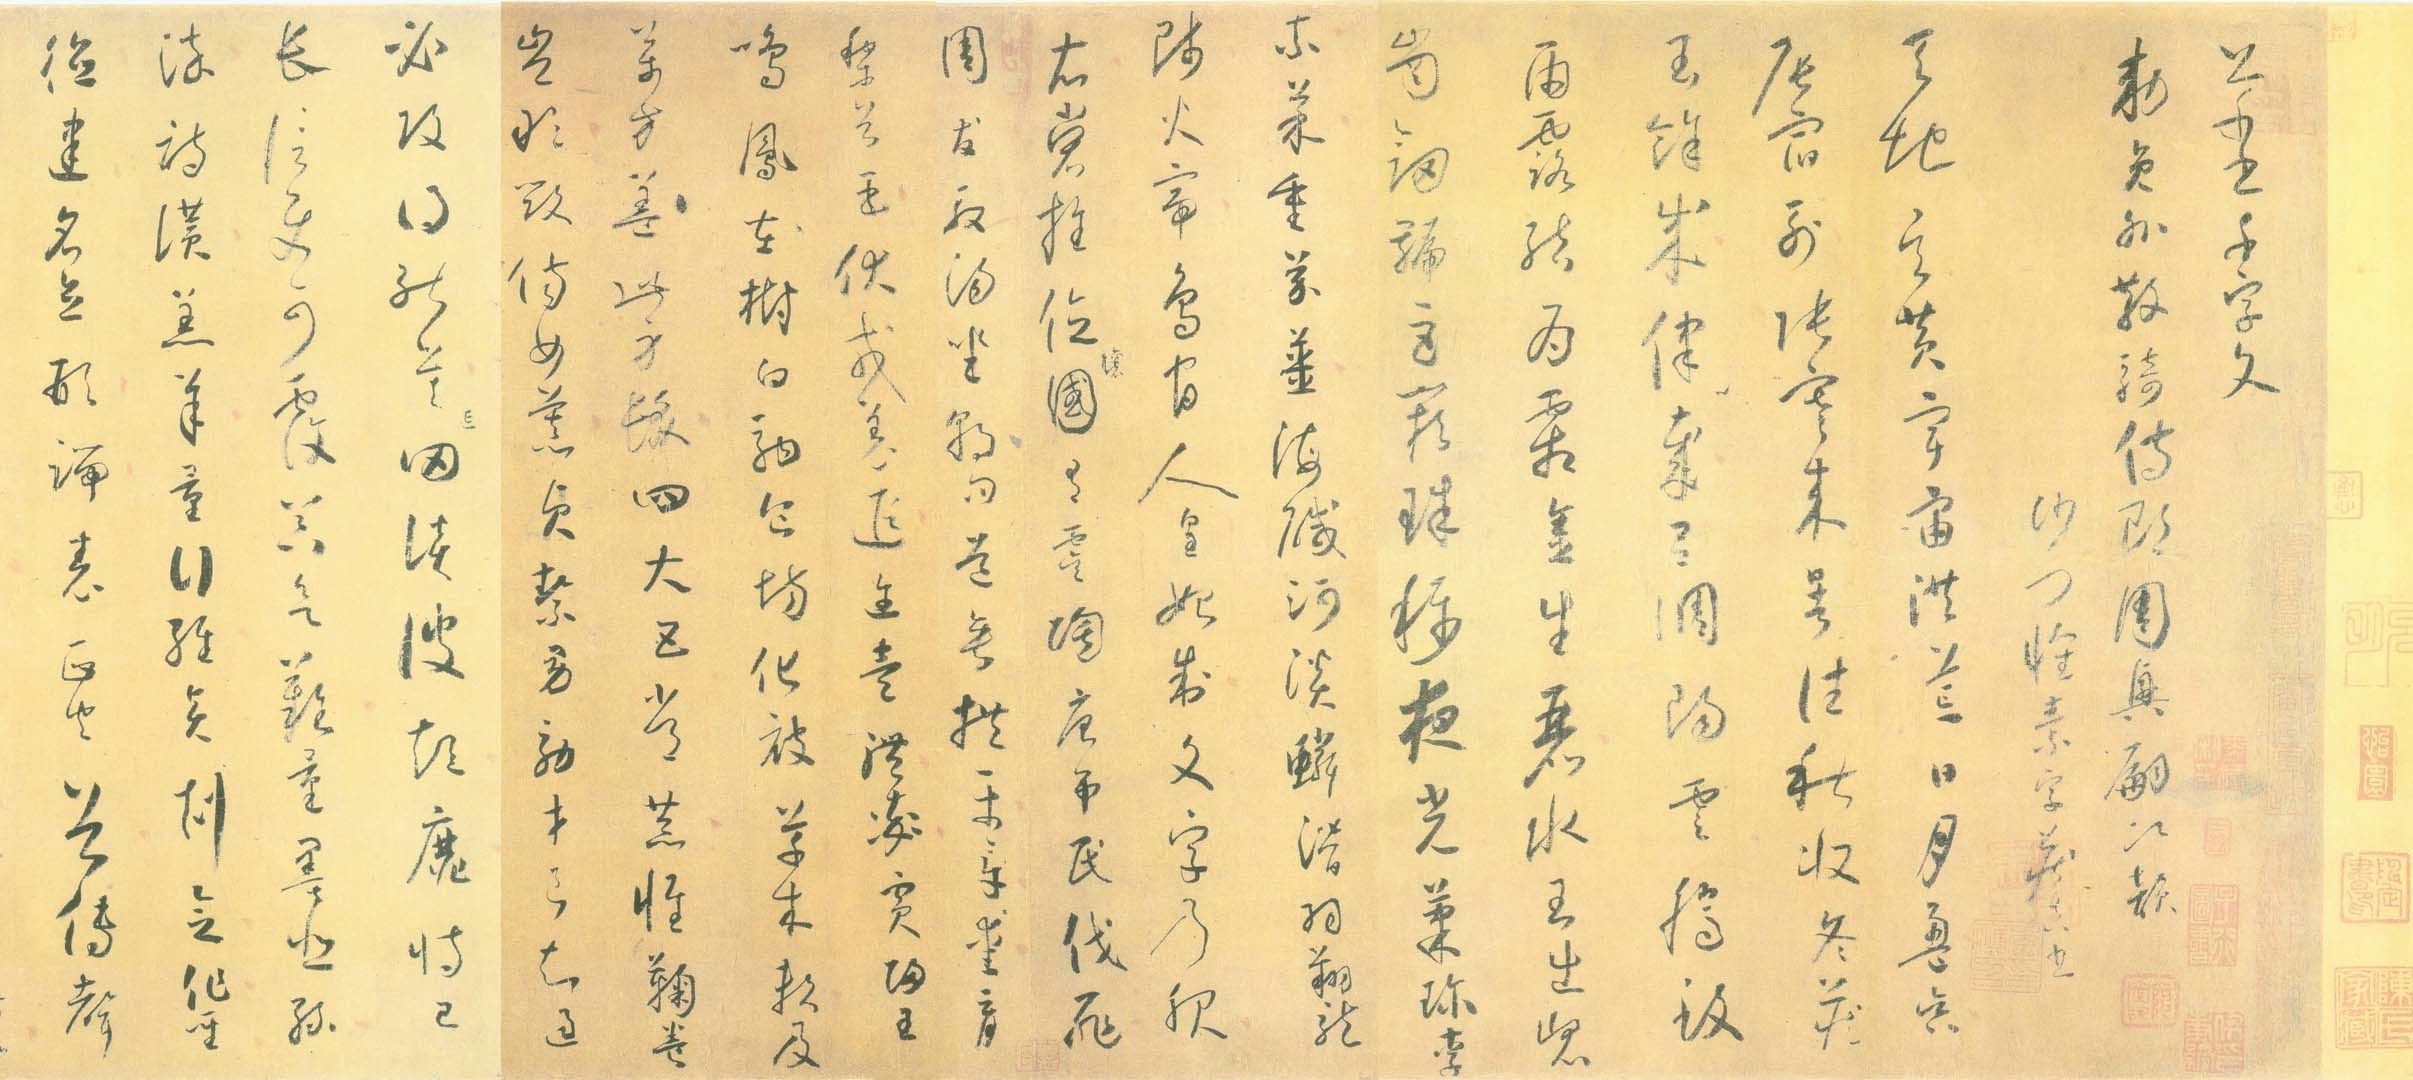 草書千字文
敕員外散騎侍郎周興嗣次韻
沙門懷素字藏真書
天地玄黃宇宙洪荒日月盈昃
辰宿列張寒來暑往秋收冬藏
閏餘成律歲呂調陽雲騰致
雨露結為霜金生麗水玉出崐
崗劍號巨闕珠稱夜光菓珍李
柰菜重芥薑海鹹河淡鱗潛羽翔龍
師火帝鳥官人皇始制文字乃服
衣裳推位讓國有虞陶唐弔民伐罪
周發殷湯坐朝問道垂拱平章愛育
黎首臣伏戎羌遐迩壹體率賓歸王
鳴鳳在樹白駒食場化被草木賴及
萬方蓋此身髮四大五常恭惟鞠養
豈敢毀傷女慕貞潔男效才良知過
必改得能莫忘罔談彼短靡恃己
長信使可覆器欲難量墨悲絲
染詩讚羔羊景行維賢剋念作聖
德建名立形端表正空谷傳聲